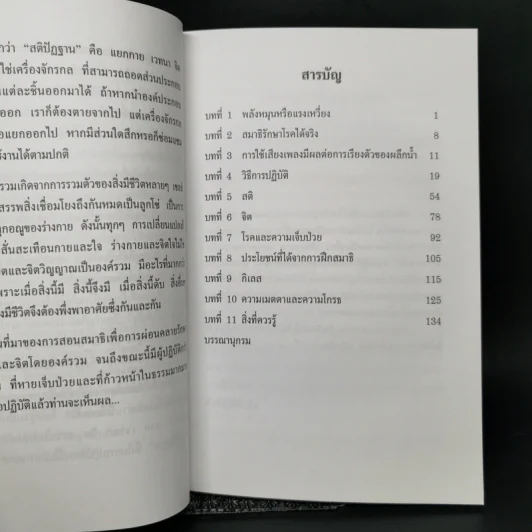 กว่า “สติปัฏฐาน” คือ แยกกาย เวทนา จิต
ใช่เครื่องจักรกล ที่สามารถถอดส่วนประกอบ
แต่ละชิ้นออกมาได้ ถ้าหากนำองค์ประกอบ
ออก เราก็ต้องตายจากไป แต่เครื่องจักรกล
อแยกออกไป หากมีส่วนใดสึกหรอก็ซ่อมแซม
ช้งานได้ตามปกติ
รวมเกิดจากการรวมตัวของสิ่งมีชีวิตหลายๆ เซลล์
สรรพสิ่งเชื่อมโยงถึงกันหมดเป็นลูกโซ่ เป็นการ
ทุกอณูของร่างกาย ดังนั้นทุกๆ การเปลี่ยนแปลง
สั่นสะเทือนกายและใจ ร่างกายและจิตใจไม่ใช่
ตและจิตวิญญาณเป็นองค์รวม มีอะไรที่มากกว่า
พราะเมื่อสิ่งนี้มี สิ่งนี้จึงมี เมื่อสิ่งนี้ดับ สิ่งอื่น
งมีชีวิตจึงต้องพึ่งพาอาศัยซึ่งกันและกัน
นที่มาของการสอนสมาธิเพื่อการผ่อนคลายรักษา
และจิตโดยองค์รวม จนถึงขณะนี้มีผู้ปฏิบัติ
น ที่หายเจ็บป่วยและที่ก้าวหน้าในธรรมมากมาย
อปฏิบัติแล้วท่านจะเห็นผล...
สารบัญ
บทที่ 1 พลังหมุนหรือแรงเหวี่ยง 1
บทที่ 2 สมาธิรักษาโรคได้จริง 8
บทที่ 3 การใช้เสียงเพลงมีผลต่อการเรียงตัวของผลึกน้ำ 11
บทที่ 4 วิธีการปฏิบัติ 19
บทที่ 5 สติ 54
บทที่ 6 จิต 78
บทที่ 7 โรคและความเจ็บป่วย 92
บทที่ 8 ประโยชน์ที่ได้จากการฝึกสมาธิ 105
บทที่ 9 กิเลส 115
บทที่ 10 ความเมตตาและความโกรธ 125
บทที่ 11 สิ่งที่ควรรู้ 134
บรรณานุกรม